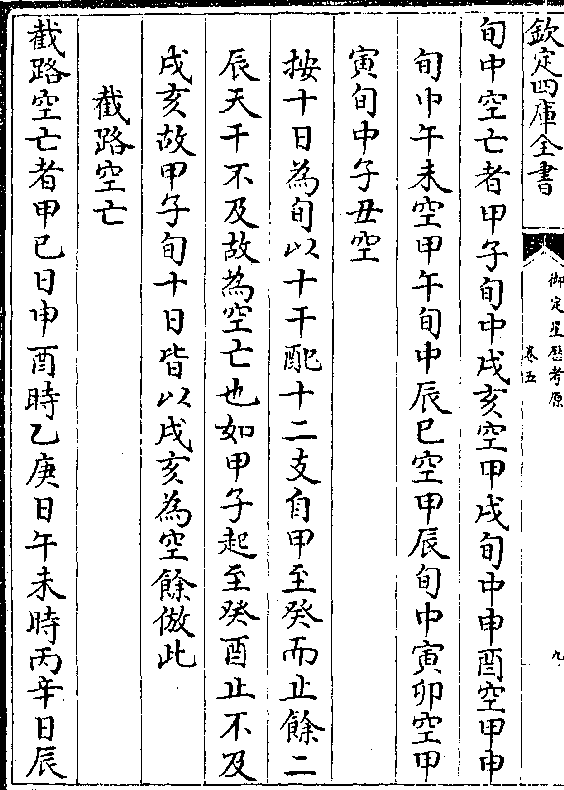 欽定四庫全書
御定星歷考原
卷五
九
旬中空亡者甲子旬中戌亥空甲戌旬中申酉空甲申
旬中午未空甲午旬中辰巳空甲辰旬中寅卯空甲
寅旬中子丑空
按十日為旬以十干配十二支自甲至癸而止餘二
辰天干不及故為空亡也如甲子起至癸酉止不及
戌亥故甲子旬十日皆以戌亥為空餘倣此
截路空亡
截路空亡者甲已日申酉時乙庚日午未時丙辛日辰